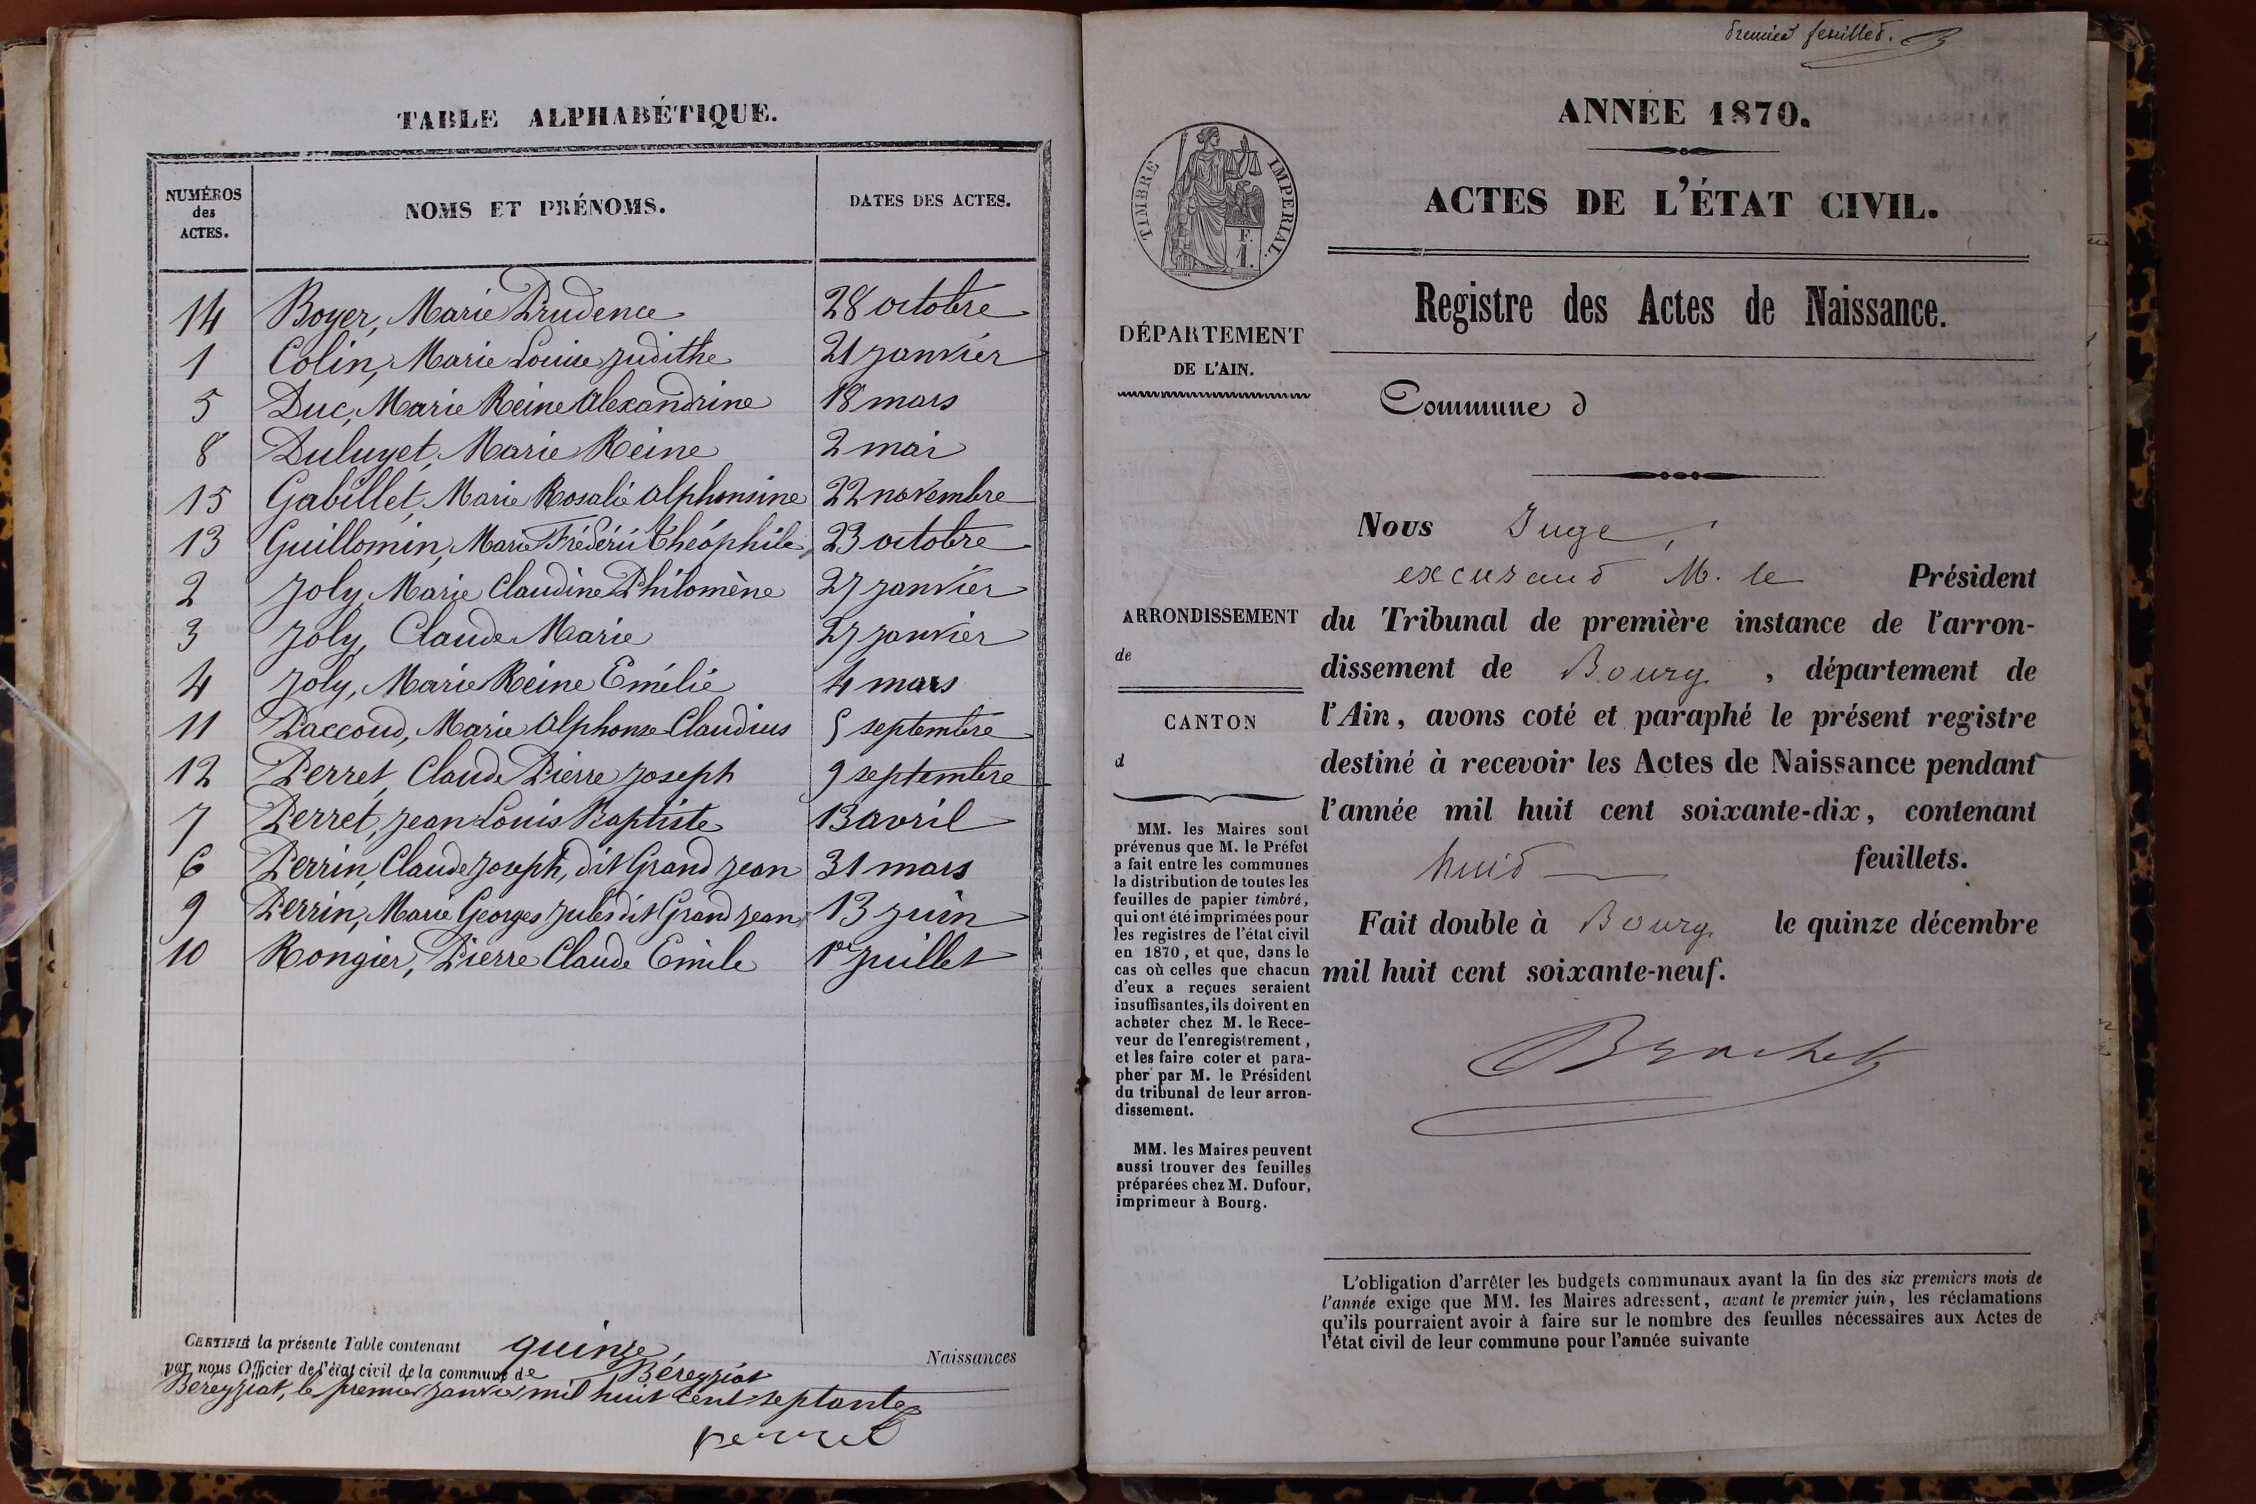 TABLE ALPHABÉTIQUE.
NUMÉROS
des
ACTES.
NOMS ET PRÉNOMS.
DATES DES ACTES.
14 Boyer, Marie Prudence 28 octobre
1 Colin, Marie Louise Judithe 21 janvier
5 Duc, Marie Reine Alexandrine 18 mars
8 Duluyet, Marie Reine 2 mai
15 Gabillet, Marie Rosalie Alphonsine 22 novembre
13 Guillomin, Marie Frédéric Théophile 23 octobre
2 Joly, Marie Claudine Philomène 27 janvier
3 Joly, Claude Marie 27 janvier
4 Joly, Marie Reine Emélie 4 mars
11 Paccoud, Marie Alphonse Claudius 5 septembre
12 Perret, Claude Pierre Joseph 9 septembre
7 Perret, Jean Louis Baptiste 13 avril
6 Perrin, Claude Joseph, dit Grand Jean 31 mars
9 Perrin, Marie Georges Jules dit Grand Jean 13 juin
10 Rongier, Pierre Claude Emile 1er juillet
CERTIFIÉ la présente Table contenant quinze Naissances
par nous Officier de l'état civil de la commune de Béreyziat
Béreyziat, le premier janvier mil huit cent septante
perret
premier feuillet.
TIMBRE IMPERIAL.
F.
1.
ANNÉE 1870.
ACTES DE L'ÉTAT CIVIL.
Registre des Actes de Naissance.
DÉPARTEMENT
DE L'AIN.
Commune d
ARRONDISSEMENT
de
CANTON
d
MM. les Maires sont
prévenus que M. le Préfet
a fait entre les communes
la distribution de toutes les
feuilles de papier timbré,
qui ont été imprimées pour
les registres de l'état civil
en 1870, et que, dans le
cas où celles que chacun
d'eux a reçues seraient
insuffisantes, ils doivent en
acheter chez M. le Rece-
veur de l'enregistrement,
et les faire coter et para-
pher par M. le Président
du tribunal de leur arron-
dissement.
MM. les Maires peuvent
aussi trouver des feuilles
préparées chez M. Dufour,
imprimeur à Bourg.
Nous Juge,
excusant M. le Président
du Tribunal de première instance de l'arron-
dissement de Bourg, département de
l'Ain, avons coté et paraphé le présent registre
destiné à recevoir les Actes de Naissance pendant
l'année mil huit cent soixante-dix, contenant
huit feuillets.
Fait double à Bourg le quinze décembre
mil huit cent soixante-neuf.
Brachet
L'obligation d'arrêter les budgets communaux avant la fin des six premiers mois de
l'année exige que MM. les Maires adressent, avant le premier juin, les réclamations
qu'ils pourraient avoir à faire sur le nombre des feuilles nécessaires aux Actes de
l'état civil de leur commune pour l'année suivante